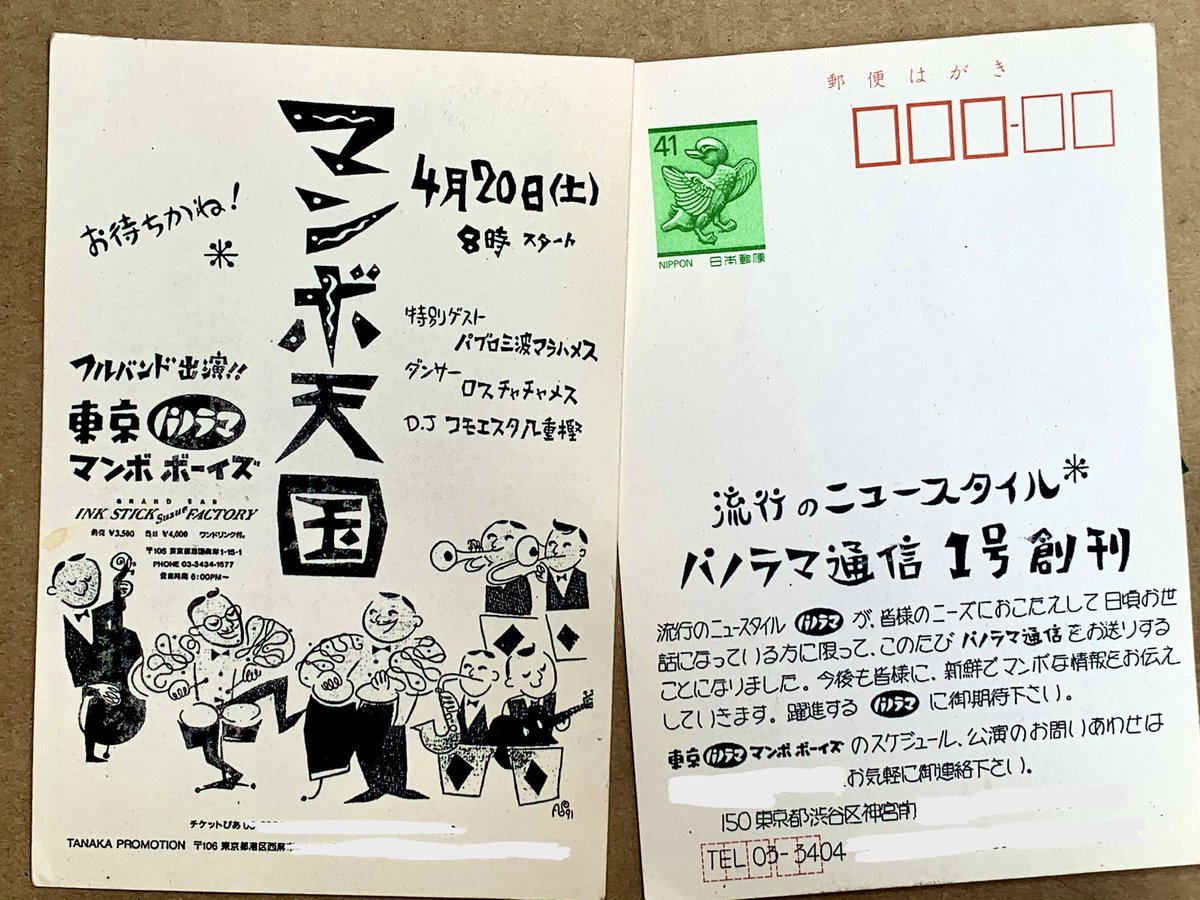 お待ちかね!
マンボ天国
4月20日(土)
8時 スタート
特別ゲスト
パブロ三波マラハメス
ダンサー
ロスチャチャメス
D.J コモエスタ八重樫
フルバンド出演!!
東京パノラマ
マンボ ボーイズ
GRAND BAR
INK STICK Suzue FACTORY
前売 ¥3,500 当日 ¥4,000 ワンドリンク付。
〒106 東京都港区海岸1-15-1
PHONE 03-3434-1677
営業時間 6:00PM〜
91
チケットぴあ
TANAKA PROMOTION 〒106 東京都港区西麻
郵便はがき
41
NIPPON 日本郵便
流行のニュースタイル*
パノラマ通信 1号創刊
流行のニュースタイル パノラマ が、皆様のニーズにおこたえして日頃お世
話になっている方に限って、このたび パノラマ通信 をお送りする
ことになりました。今後も皆様に、新鮮でマンボな情報をお伝え
していきます。躍進する パノラマ に御期待下さい。
東京パノラママンボ ボーイズ のスケジュール、公演のお問いあわせは
お気軽に御連絡下さい。
150 東京都渋谷区神宮前
TEL 03-3404